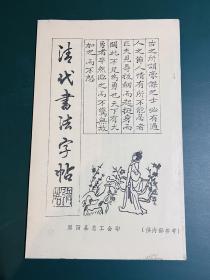 古之所謂豪傑之士必有過
人之節人情有所不能忍者
匹夫見辱拔劍而起挺身而
鬬此不足為勇也天下有大
勇者卒然臨之而不驚無故
加之而不怒
清代書法字帖
县总工会印
(供内部参考)